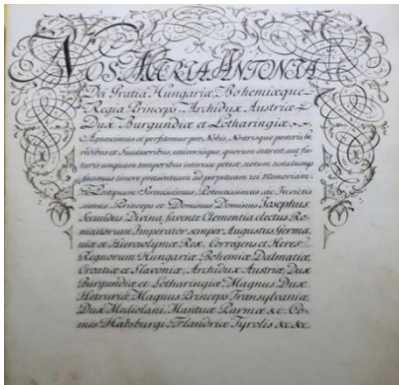 NOS MARIA ANTONIA
Dei Gratiâ Hungariæ, Bohemiæque
Regia Princeps Archidux Austriæ &
Dux Burgundiæ et Lotharingiæ
Agnoscimus et profitemur pro Nobis, Nostrisque posteris hæ
redibus et Successoribus, universisque, quorum interest aut fu-
turis unquam temporibus interesse potest, notum testatumque
facimus tenore præsentium ad perpetuam rei Memoriam.
Postquam Serenissimus, Potentissimus ac Invictis
simus Princeps et Dominus Dominus Josephus
Secundus Divina favente Clementia electus Ro-
manorum Imperator semper Augustus Germa
niæ et Hierosolymæ Rex, Corregens et Heres
Regnorum Hungariæ Bohemiæ Dalmatiæ
Croatiæ et Slavoniæ, Archidux Austriæ, Dux
Burgundiæ et Lotharingiæ Magnus Dux
Hetruriæ Magnus Princeps Transylvaniæ
Dux Mediolani, Mantuæ Parmæ &c. Co-
mes Habsburgi Flandriæ Tyrolis &c &c